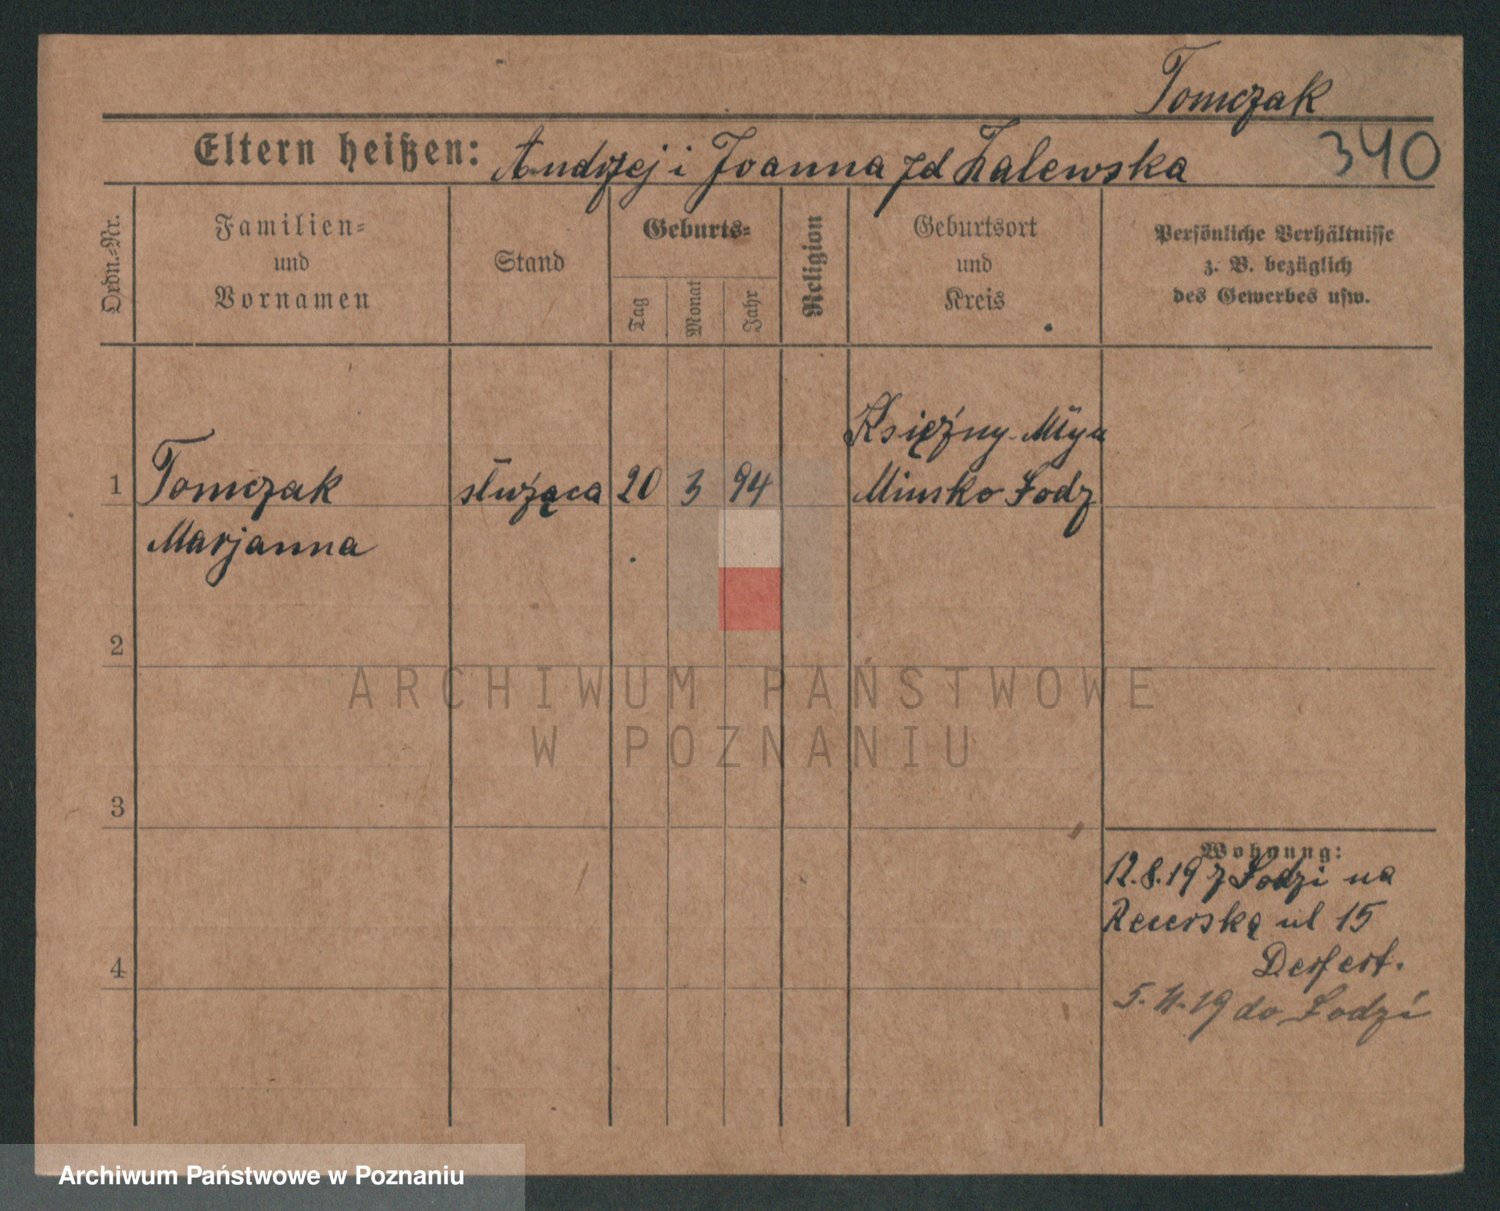 Tomczak
340
Eltern heißen: Andrzej i Joanna zd Zalewska
Ordn.-Nr.
Familien-
und
Vornamen
Stand
Geburts-
Tag
Monat
Jahr
Religion
Geburtsort
und
Kreis
Persönliche Verhältnisse
z. B. bezüglich
des Gewerbes usw.
Księżny-Młyn
1 Tomczak służąca 20 3 94 Minsko Łodz
Marjanna
2
ARCHIWUM PAŃSTWOWE
W POZNANIU
3
Wohnung:
12.8.19 z Łodzi na
ul 15
4
5.11.19 do Łodzi
Archiwum Państwowe w Poznaniu